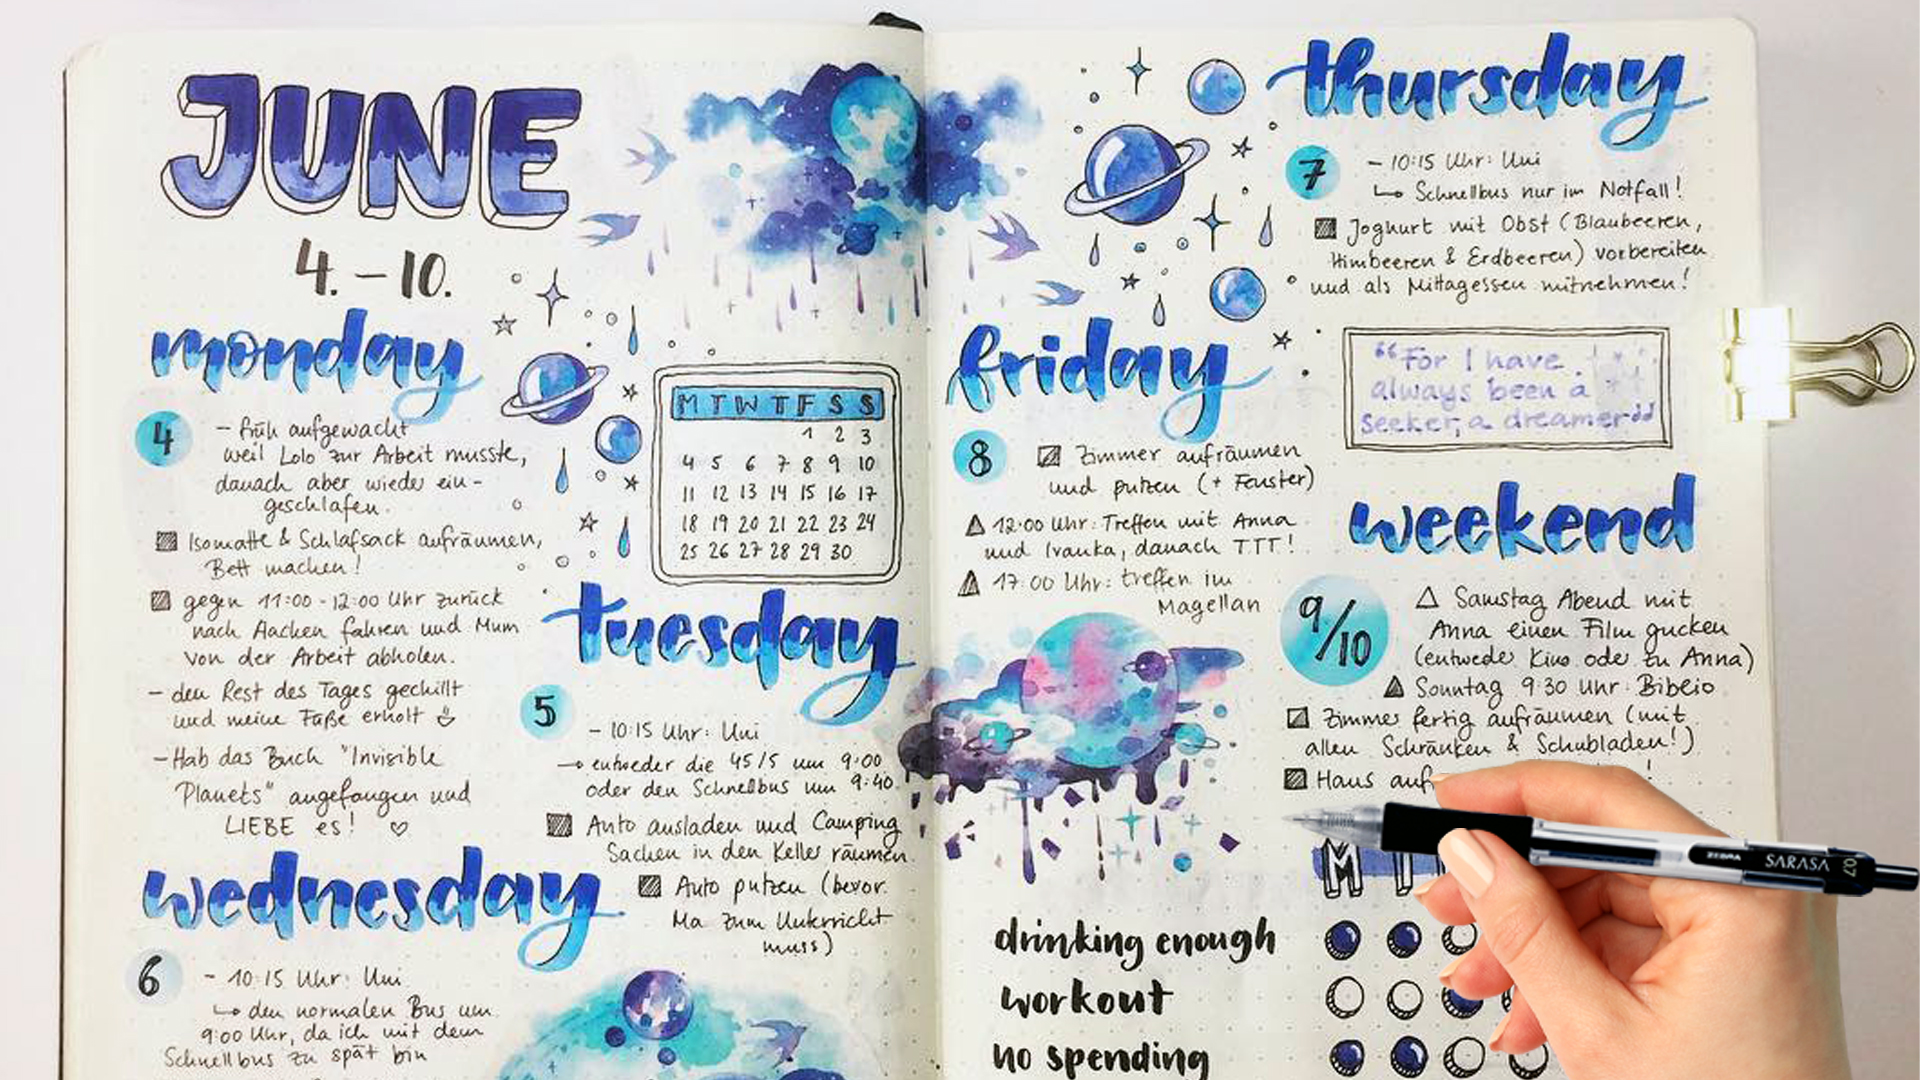 JUNE
4. – 10.
monday
4
– früh aufgewacht
weil Lolo zur Arbeit musste,
danach aber wieder ein-
geschlafen.
Isomatte & Schlafsack aufräumen,
Bett machen!
gegen 11:00 - 12:00 Uhr zurück
nach Aachen fahren und Mum
von der Arbeit abholen.
– den Rest des Tages gechillt
und meine Füße erholt
– Hab das Buch "Invisible
Planets" angefangen und
LIEBE es! ♡
M T W T F S S
1 2 3
4 5 6 7 8 9 10
11 12 13 14 15 16 17
18 19 20 21 22 23 24
25 26 27 28 29 30
tuesday
5
– 10:15 Uhr: Uni
→ entweder die 45/5 um 9:00
oder den Schnellbus um 9:40
Auto ausladen und Camping
Sachen in den Keller räumen.
Auto putzen (bevor
Ma zum Unterricht
muss)
wednesday
6
– 10:15 Uhr: Uni
↳ den normalen Bus um
9:00 Uhr, da ich mit dem
Schnellbus zu spät bin
thursday
7
– 10:15 Uhr: Uni
↳ Schnellbus nur im Notfall!
Joghurt mit Obst (Blaubeeren,
Himbeeren & Erdbeeren) vorbereiten
und als Mittagessen mitnehmen!
friday
8
Zimmer aufräumen
und putzen (+ Fenster)
12:00 Uhr: Treffen mit Anna
und Ivanka, danach TTT!
17:00 Uhr: treffen im
Magellan
"For I have
always been a
seeker, a dreamer"
weekend
9/10
Samstag Abend mit
Anna einen Film gucken
(entweder Kino oder zu Anna)
Sonntag 9:30 Uhr: Bibcio
Zimmer fertig aufräumen (mit
allen Schränken & Schubladen!)
Haus auf !
M T
drinking enough
workout
no spending
ZEBRA SARASA 0.7